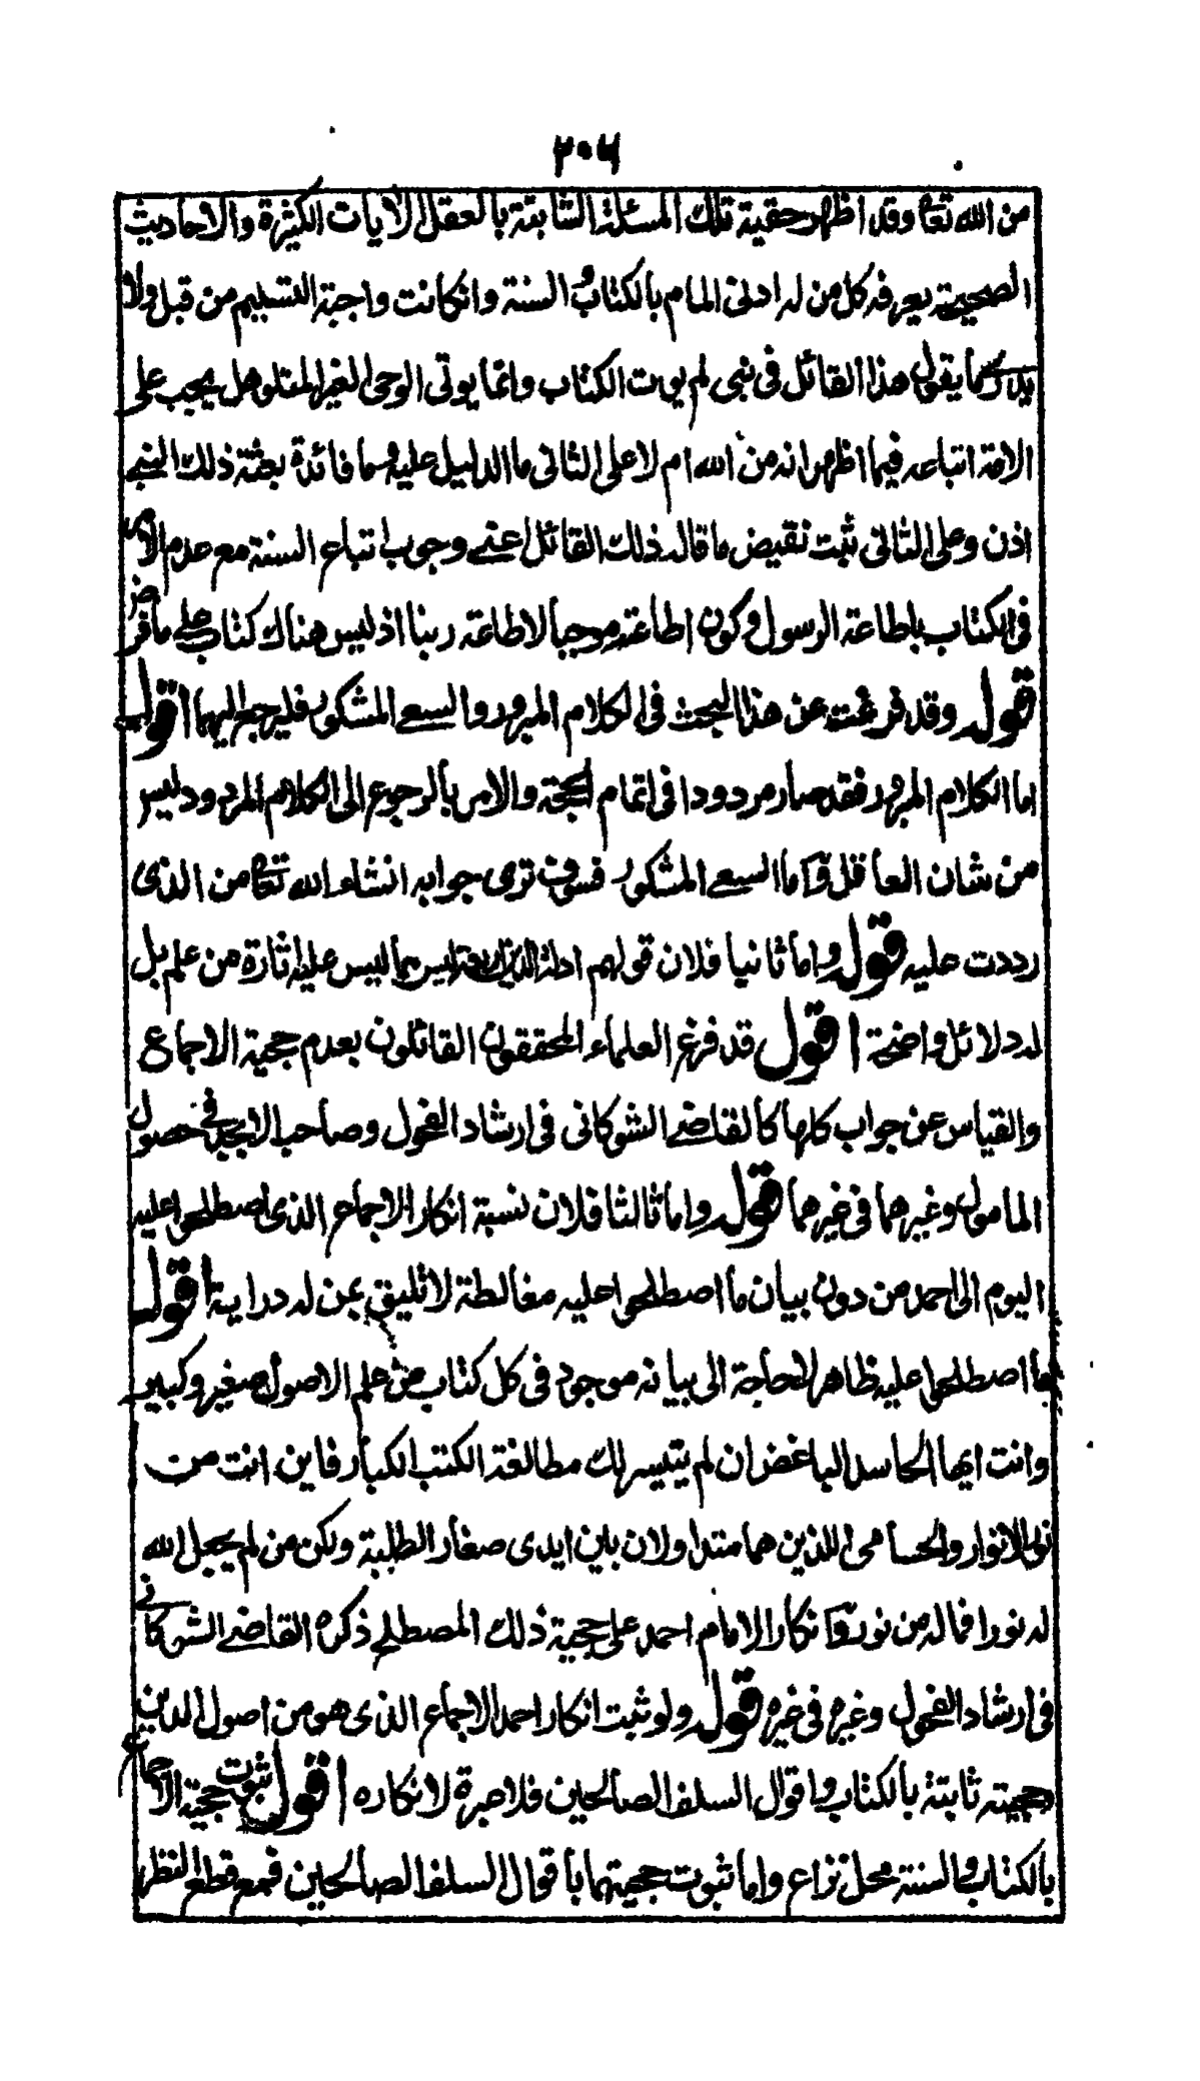 ٢٠٦
من الله تعا وقد اظهر حقية تلك المسئلة الثابتة بالعقل الآيات الكثيرة والاحاديث
الصحيحة يعرفه كل من له ادنى المام بالكتاب والسنة وان كانت واجبة التسليم من قبل ولا
يدرى ما يقول هذا القائل فى نبى لم يوت الكتاب وانما يوتى الوحى الغير المتلو هل يجب على
الامة اتباعه فيما اظهر انه من الله ام لا على الثانى ما الدليل عليه وما فائدة بعثة ذلك النبى
اذن وعلى الثانى ثبت نقيض ما قاله ذلك القائل اعنى وجوب اتباع السنة مع عدم الامر
فى الكتاب باطاعة الرسول وكون اطاعته موجبا لاطاعة ربنا اذ ليس هناك كتاب على ما فرض
قوله وقد فرغت عن هذا البحث فى الكلام المبرور والسعى المشكور فليرجع اليهما اقول
اما الكلام المبرور فقد صار مردودا فى اتمام الحجة والامر بالرجوع الى الكلام المردود ليس
من شان العاقل واما السعى المشكور فسوف ترى جوابه انشاء الله تعا من الذى
رددت عليه قوله واما ثانيا فلان قولهم ادلة الدين اربعة ليس مما ليس عليه اثارة من علم بل
له دلائل واضحة اقول قد فرغ العلماء المحققون القائلون بعدم حجية الاجماع
والقياس عن جواب كلها كالقاضى الشوكانى فى ارشاد الفحول وصاحب الابجد فى حصول
المامول وغيرهما فى غيرهما قوله واما ثالثا فلان نسبة انكار الاجماع الذى اصطلحوا عليه
اليوم الى احمد من دون بيان ما اصطلحوا عليه مغالطة لا تليق بمن له دراية اقول
ما اصطلحوا عليه ظاهر لا حاجة الى بيانه موجود فى كل كتاب من علم الاصول صغير وكبير
وانت ايها الحاسد الباغض ان لم يتيسر لك مطالعة الكتب الكبار فاين انت من
نور الانوار والحسامى اللذين هما متداولان باين ايدى صغار الطلبة ولكن من لم يجعل الله
له نورا فما له من نور وانكار الامام احمد على حجية ذلك المصطلح ذكره القاضى الشوكانى
فى ارشاد الفحول وغيره فى غيره قوله ولو ثبت انكار احمد الاجماع الذى هو من اصول الدين
حجيته ثابتة بالكتاب واقوال السلف الصالحين فلا عبرة لانكاره اقول ثبوت حجية الاجماع
بالكتاب والسنة محل نزاع واما ثبوت حجيتهما باقوال السلف الصالحين فمع قطع النظر